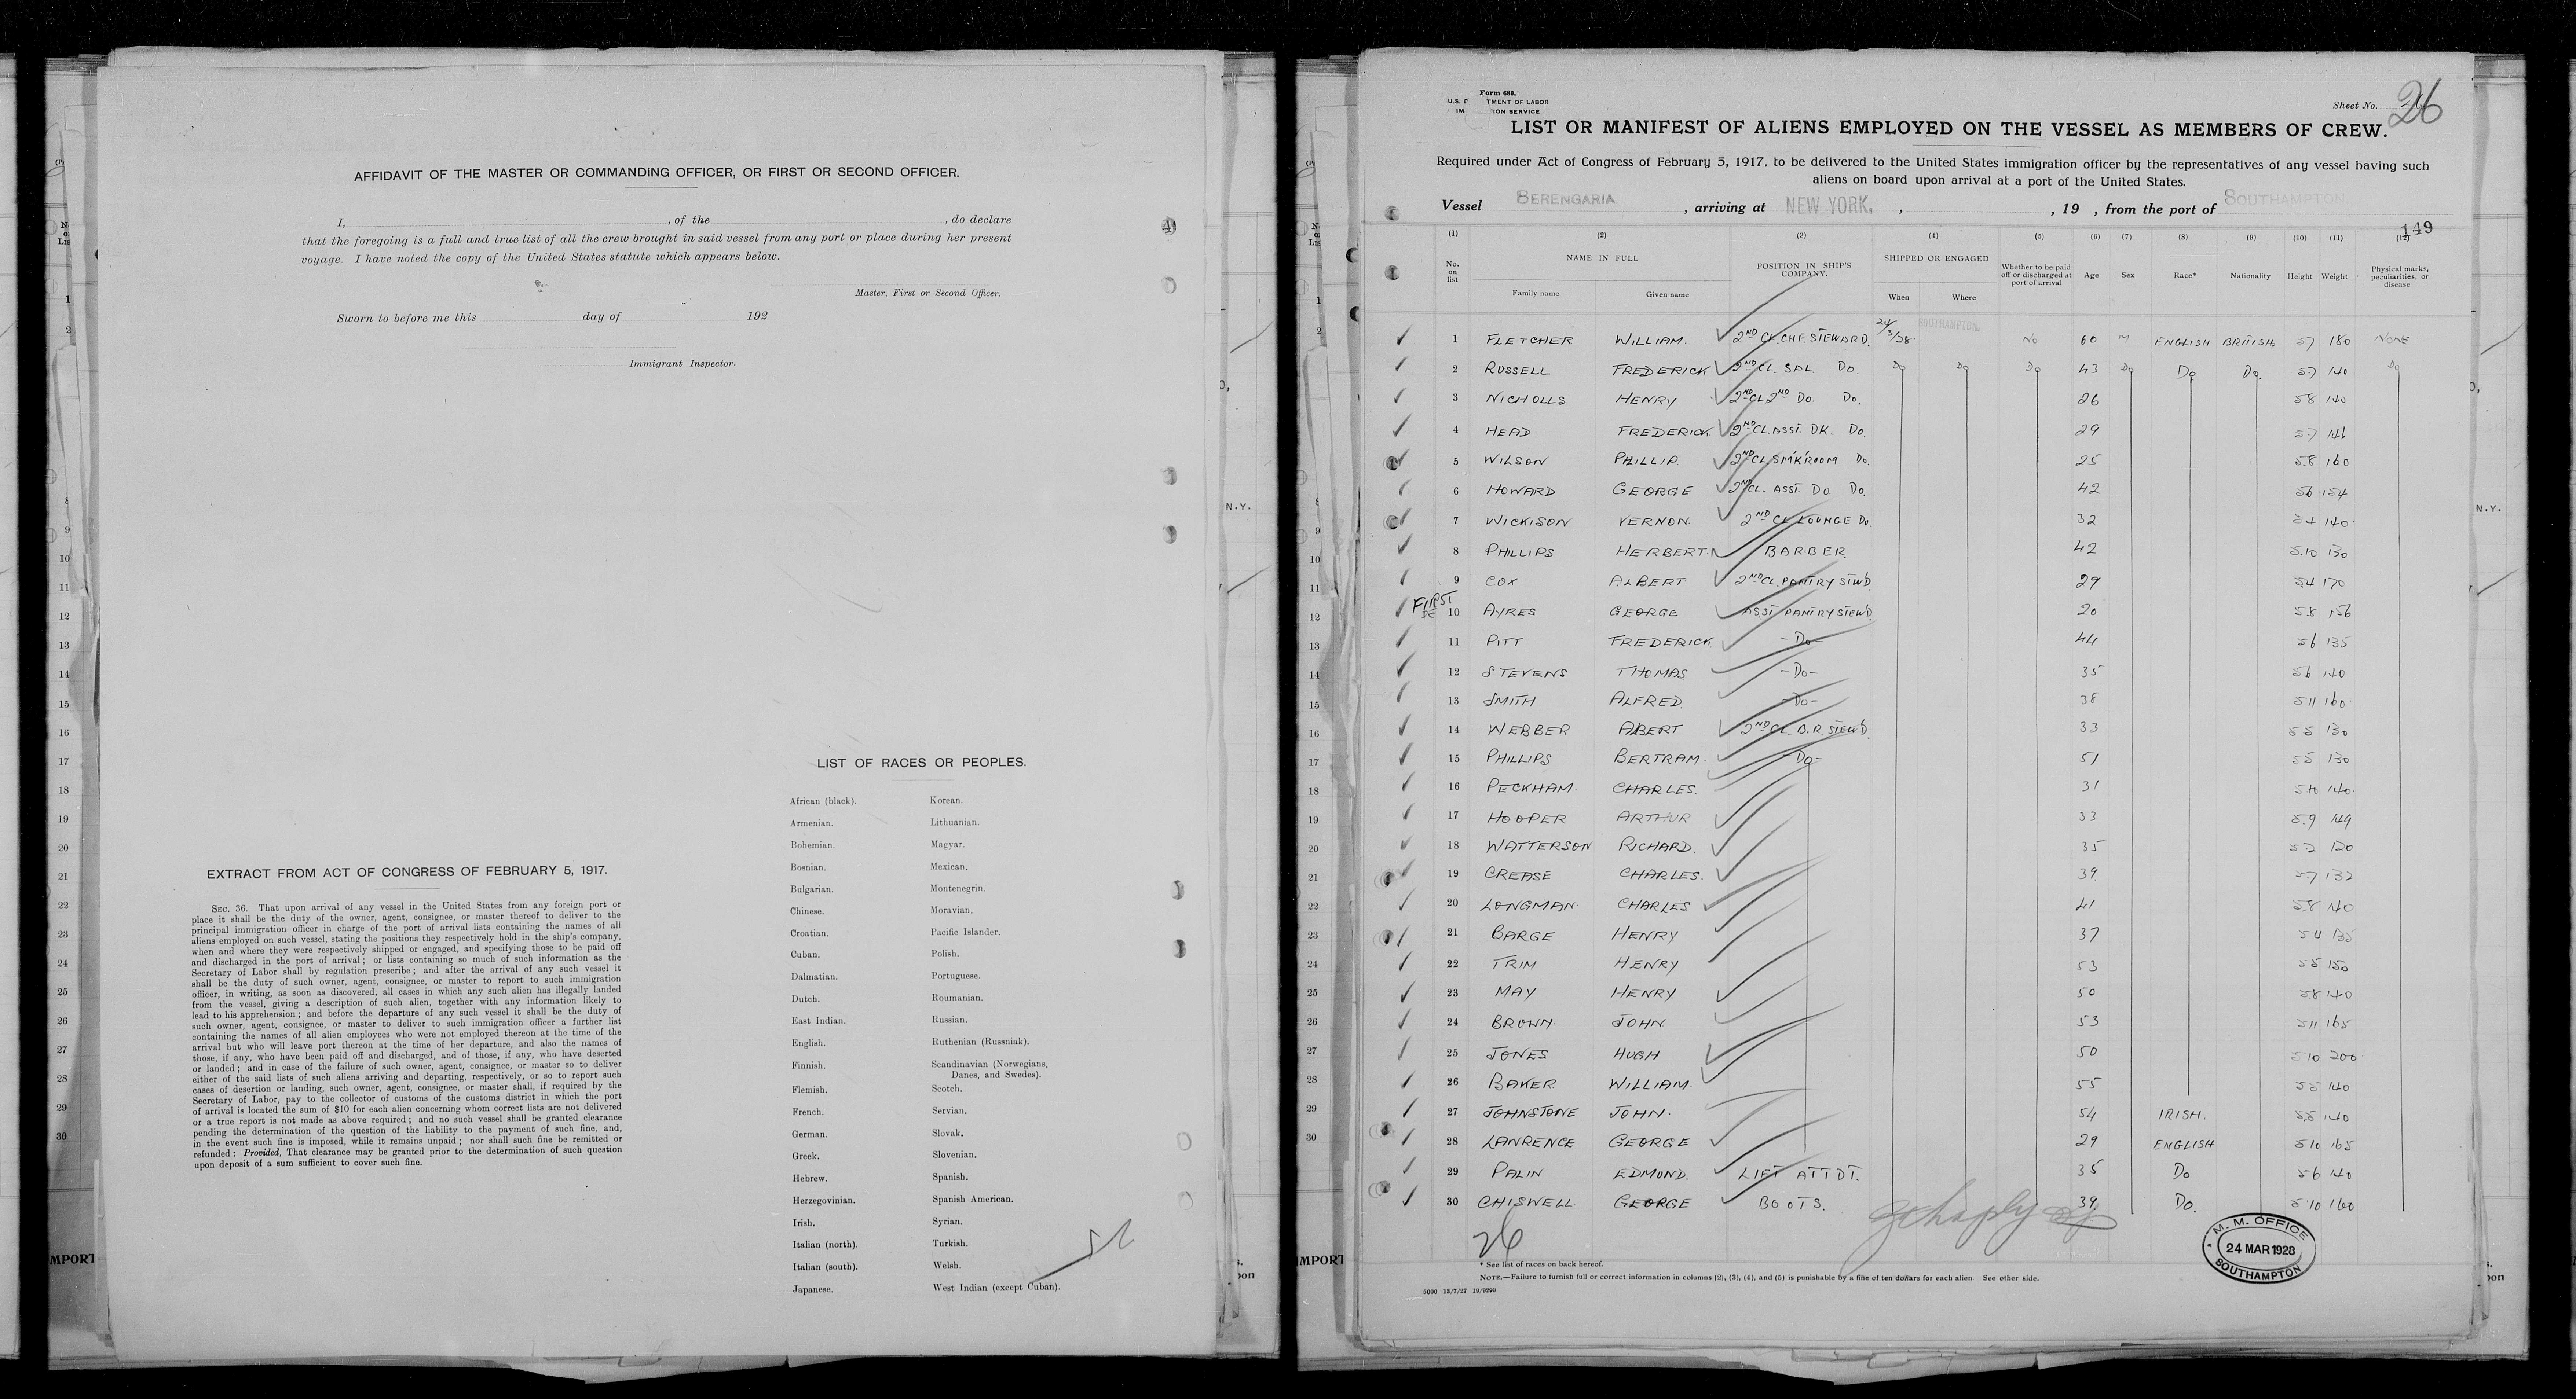 AFFIDAVIT OF THE MASTER OR COMMANDING OFFICER, OR FIRST OR SECOND OFFICER.
I, , of the , do declare
that the foregoing is a full and true list of all the crew brought in said vessel from any port or place during her present
voyage. I have noted the copy of the United States statute which appears below.
Master, First or Second Officer.
Sworn to before me this day of 192
Immigrant Inspector.
EXTRACT FROM ACT OF CONGRESS OF FEBRUARY 5, 1917.
SEC. 36. That upon arrival of any vessel in the United States from any foreign port or
place it shall be the duty of the owner, agent, consignee, or master thereof to deliver to the
principal immigration officer in charge of the port of arrival lists containing the names of all
aliens employed on such vessel, stating the positions they respectively hold in the ship's company,
when and where they were respectively shipped or engaged, and specifying those to be paid off
and discharged in the port of arrival; or lists containing so much of such information as the
Secretary of Labor shall by regulation prescribe; and after the arrival of any such vessel it
shall be the duty of such owner, agent, consignee, or master to report to such immigration
officer, in writing, as soon as discovered, all cases in which any such alien has illegally landed
from the vessel, giving a description of such alien, together with any information likely to
lead to his apprehension; and before the departure of any such vessel it shall be the duty of
such owner, agent, consignee, or master to deliver to such immigration officer a further list
containing the names of all alien employees who were not employed thereon at the time of the
arrival but who will leave port thereon at the time of her departure, and also the names of
those, if any, who have been paid off and discharged, and of those, if any, who have deserted
or landed; and in case of the failure of such owner, agent, consignee, or master so to deliver
either of the said lists of such aliens arriving and departing, respectively, or so to report such
cases of desertion or landing, such owner, agent, consignee, or master shall, if required by the
Secretary of Labor, pay to the collector of customs of the customs district in which the port
of arrival is located the sum of $10 for each alien concerning whom correct lists are not delivered
or a true report is not made as above required; and no such vessel shall be granted clearance
pending the determination of the question of the liability to the payment of such fine, and,
in the event such fine is imposed, while it remains unpaid; nor shall such fine be remitted or
refunded: Provided, That clearance may be granted prior to the determination of such question
upon deposit of a sum sufficient to cover such fine.
LIST OF RACES OR PEOPLES.
African (black). Korean.
Armenian. Lithuanian.
Bohemian. Magyar.
Bosnian. Mexican.
Bulgarian. Montenegrin.
Chinese. Moravian.
Croatian. Pacific Islander.
Cuban. Polish.
Dalmatian. Portuguese.
Dutch. Roumanian.
East Indian. Russian.
English. Ruthenian (Russniak).
Finnish. Scandinavian (Norwegians,
Danes, and Swedes).
Flemish. Scotch.
French. Servian.
German. Slovak.
Greek. Slovenian.
Hebrew. Spanish.
Herzegovinian. Spanish American.
Irish. Syrian.
Italian (north). Turkish.
Italian (south). Welsh.
Japanese. West Indian (except Cuban).
Form 680.
U.S. TMENT OF LABOR
IM ION SERVICE
Sheet No. 26
LIST OR MANIFEST OF ALIENS EMPLOYED ON THE VESSEL AS MEMBERS OF CREW.
Required under Act of Congress of February 5, 1917, to be delivered to the United States immigration officer by the representatives of any vessel having such
aliens on board upon arrival at a port of the United States.
Vessel BERENGARIA , arriving at NEW YORK, , , 19 , from the port of SOUTHAMPTON.
149
(1) (2) (3) (4) (5) (6) (7) (8) (9) (10) (11) (12)
No. on list NAME IN FULL POSITION IN SHIP'S COMPANY. SHIPPED OR ENGAGED Whether to be paid off or discharged at port of arrival Age Sex Race* Nationality Height Weight Physical marks, peculiarities, or disease
Family name Given name When Where
1 FLETCHER WILLIAM. 2ND CL CHF. STEWARD. 24/3/28 SOUTHAMPTON. No 60 M ENGLISH BRITISH 57 180 NONE
2 RUSSELL FREDERICK 2ND CL. SAL. Do. Do Do Do 43 Do Do Do. 57 140 Do
3 NICHOLLS HENRY 2ND CL 2ND Do. Do. 26 58 140
4 HEAD FREDERICK 2ND CL. ASST. DK. Do. 29 57 146
5 WILSON PHILLIP. 2ND CL SM'K'ROOM Do. 25 5.8 160
6 HOWARD GEORGE 2ND CL. ASST. Do. Do. 42 56 154
7 WICKISON VERNON. 2ND CL LOUNGE Do. 32 54 140
8 PHILLIPS HERBERT. BARBER 42 5.10 130
9 COX ALBERT 2ND CL. PANTRY STWD 29 54 170
FIRST
10 AYRES GEORGE ASST PANTRY STEWD. 20 5.8 156
11 PITT FREDERICK -Do- 44 56 135
12 STEVENS THOMAS -Do- 35 56 140
13 SMITH ALFRED. -Do- 38 511 160
14 WEBBER ALBERT 2ND CL. B.R. STEWD. 33 55 130
15 PHILLIPS BERTRAM. -Do- 51 55 130
16 PECKHAM. CHARLES. 31 140
17 HOOPER ARTHUR 33 5.9 149
18 WATTERSON RICHARD. 35 52 120
19 CREASE CHARLES. 39 57 132
20 LONGMAN. CHARLES 41 58 140
21 BARGE HENRY 37 54 135
22 TRIM HENRY 53 55 150
23 MAY HENRY 50 58 140
24 BROWN JOHN 53 511 165
25 JONES HUGH 50 510 200
26 BAKER WILLIAM. 55 55 140
27 JOHNSTONE JOHN. 54 IRISH. 55 140
28 LAWRENCE GEORGE 29 ENGLISH 510 165
29 PALIN EDMOND. LIFT ATTDT. 35 Do 56 140
30 CHISWELL GEORGE BOOTS. 39 Do. 510 160
26
M. M. OFFICE
24 MAR 1928
SOUTHAMPTON
* See list of races on back hereof.
NOTE.—Failure to furnish full or correct information in columns (2), (3), (4), and (5) is punishable by a fine of ten dollars for each alien. See other side.
5000 13/7/27 19/9290